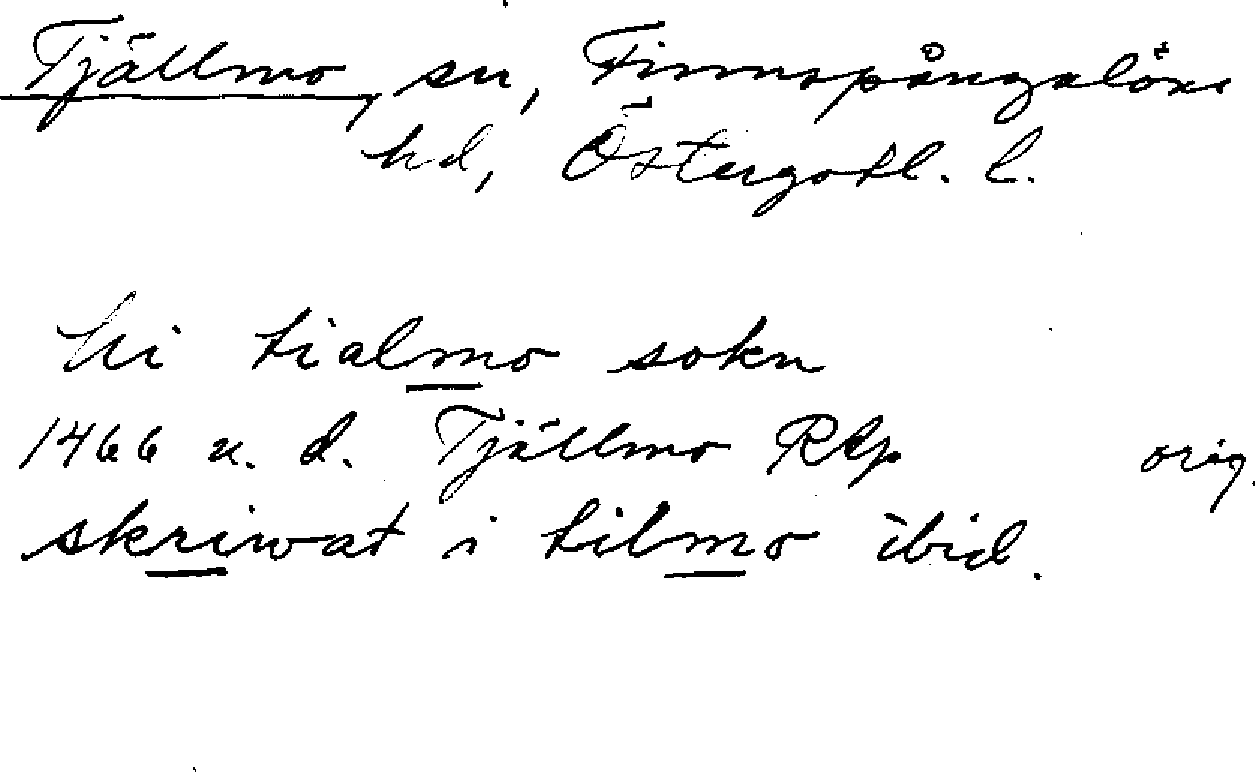 Tjällmo, sn, Finnspångaläns
hd, Östergötl. l.
hi tialmo sokn
1466 u. d. Tjällmo RAp orig.
skriwat i tilmo ibid.